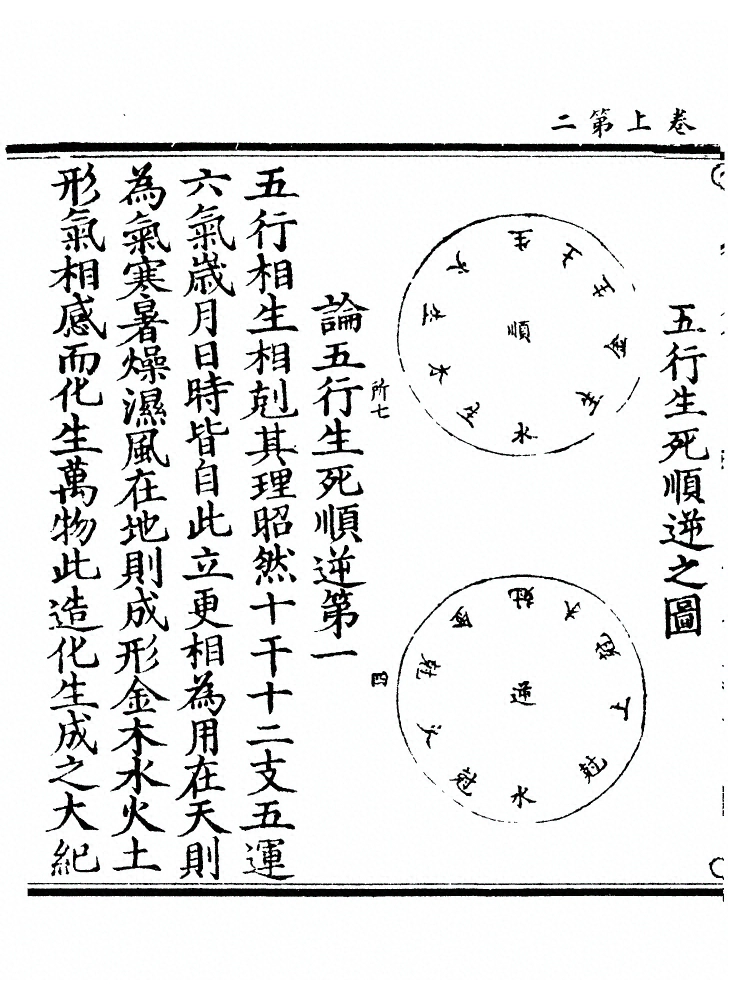 卷上第二
五行生死順逆之圖
順
生
土
生
金
生
水
生
木
生
火
逆
剋
火
剋
剋
水
剋
剋
金
所七
四
論五行生死順逆第一
五行相生相剋其理昭然十干十二支五運
六氣歲月日時皆自此立更相為用在天則
為氣寒暑燥濕風在地則成形金木水火土
形氣相感而化生萬物此造化生成之大紀